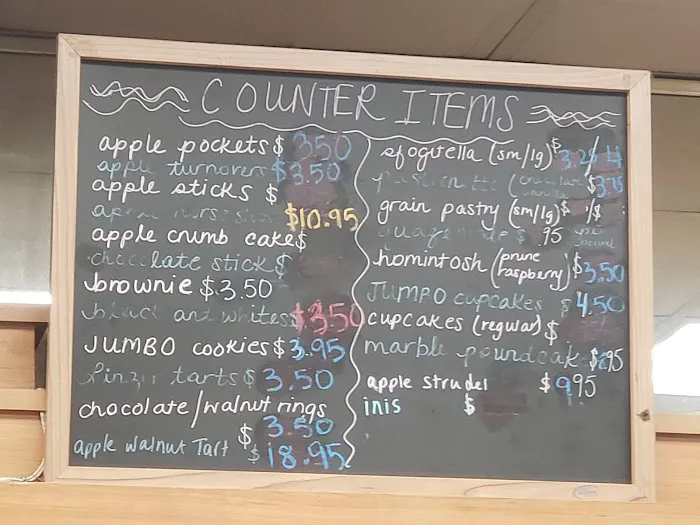 COUNTER ITEMS
apple pockets $ 3.50
apple turnovers $3.50
apple sticks $
$10.95
apple crumb cake $
chocolate stick $
brownie $3.50
black and whites $3.50
JUMBO cookies $3.95
linzer tarts $3.50
chocolate/walnut rings
$ 3.50
apple walnut Tart $18.95
sfogitella (sm/lg) $3.25/4
$3.75
grain pastry (sm/lg) $ /$
.95
homintosh (prune raspberry) $3.50
JUMBO cupcakes $4.50
cupcakes (regular) $
marble poundcake
apple strudel $9.95
inis $